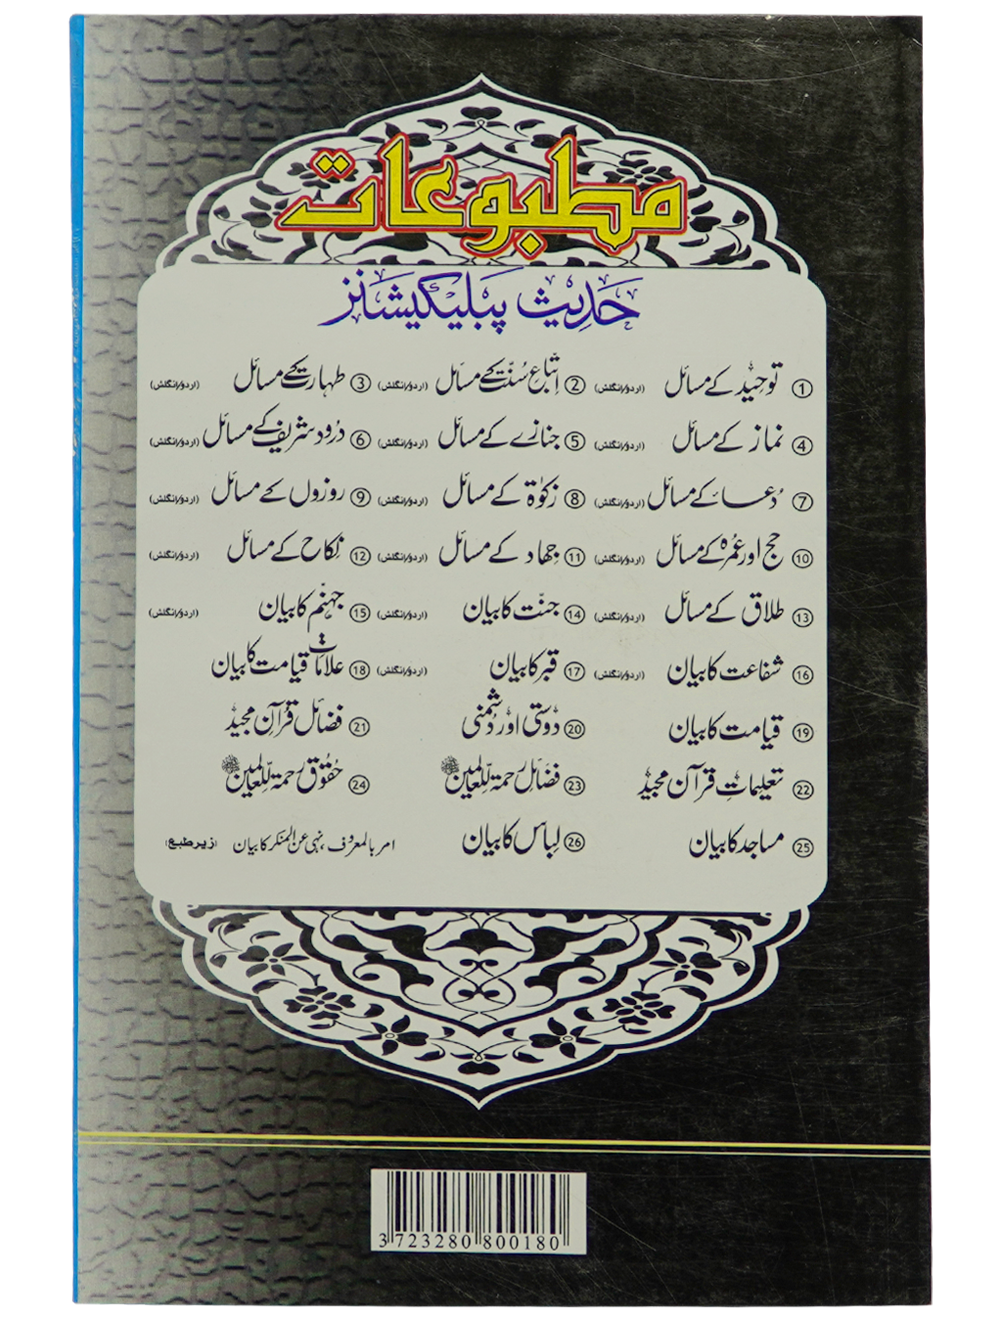 مطبوعات
حدیث پبلیکیشنز
① توحید کے مسائل (اردو/انگلش) ② اتباع سنت کے مسائل (اردو/انگلش) ③ طہارت کے مسائل (اردو/انگلش)
④ نماز کے مسائل (اردو/انگلش) ⑤ جنازے کے مسائل (اردو/انگلش) ⑥ درود شریف کے مسائل (اردو/انگلش)
⑦ دُعا کے مسائل (اردو/انگلش) ⑧ زکوٰۃ کے مسائل (اردو/انگلش) ⑨ روزوں کے مسائل (اردو/انگلش)
⑩ حج اور عمرہ کے مسائل (اردو/انگلش) ⑪ جہاد کے مسائل (اردو/انگلش) ⑫ نکاح کے مسائل (اردو/انگلش)
⑬ طلاق کے مسائل (اردو/انگلش) ⑭ جنت کا بیان (اردو/انگلش) ⑮ جہنم کا بیان (اردو/انگلش)
⑯ شفاعت کا بیان (اردو/انگلش) ⑰ قبر کا بیان (اردو/انگلش) ⑱ علاماتِ قیامت کا بیان
⑲ قیامت کا بیان ⑳ دوستی اور دشمنی ㉑ فضائل قرآن مجید
㉒ تعلیماتِ قرآن مجید ㉓ فضائل رحمۃ للعالمین ﷺ ㉔ حقوق رحمۃ للعالمین ﷺ
㉕ مساجد کا بیان ㉖ لباس کا بیان امر بالمعروف، نہی عن المنکر کا بیان (زیر طبع)
3 723280 800180